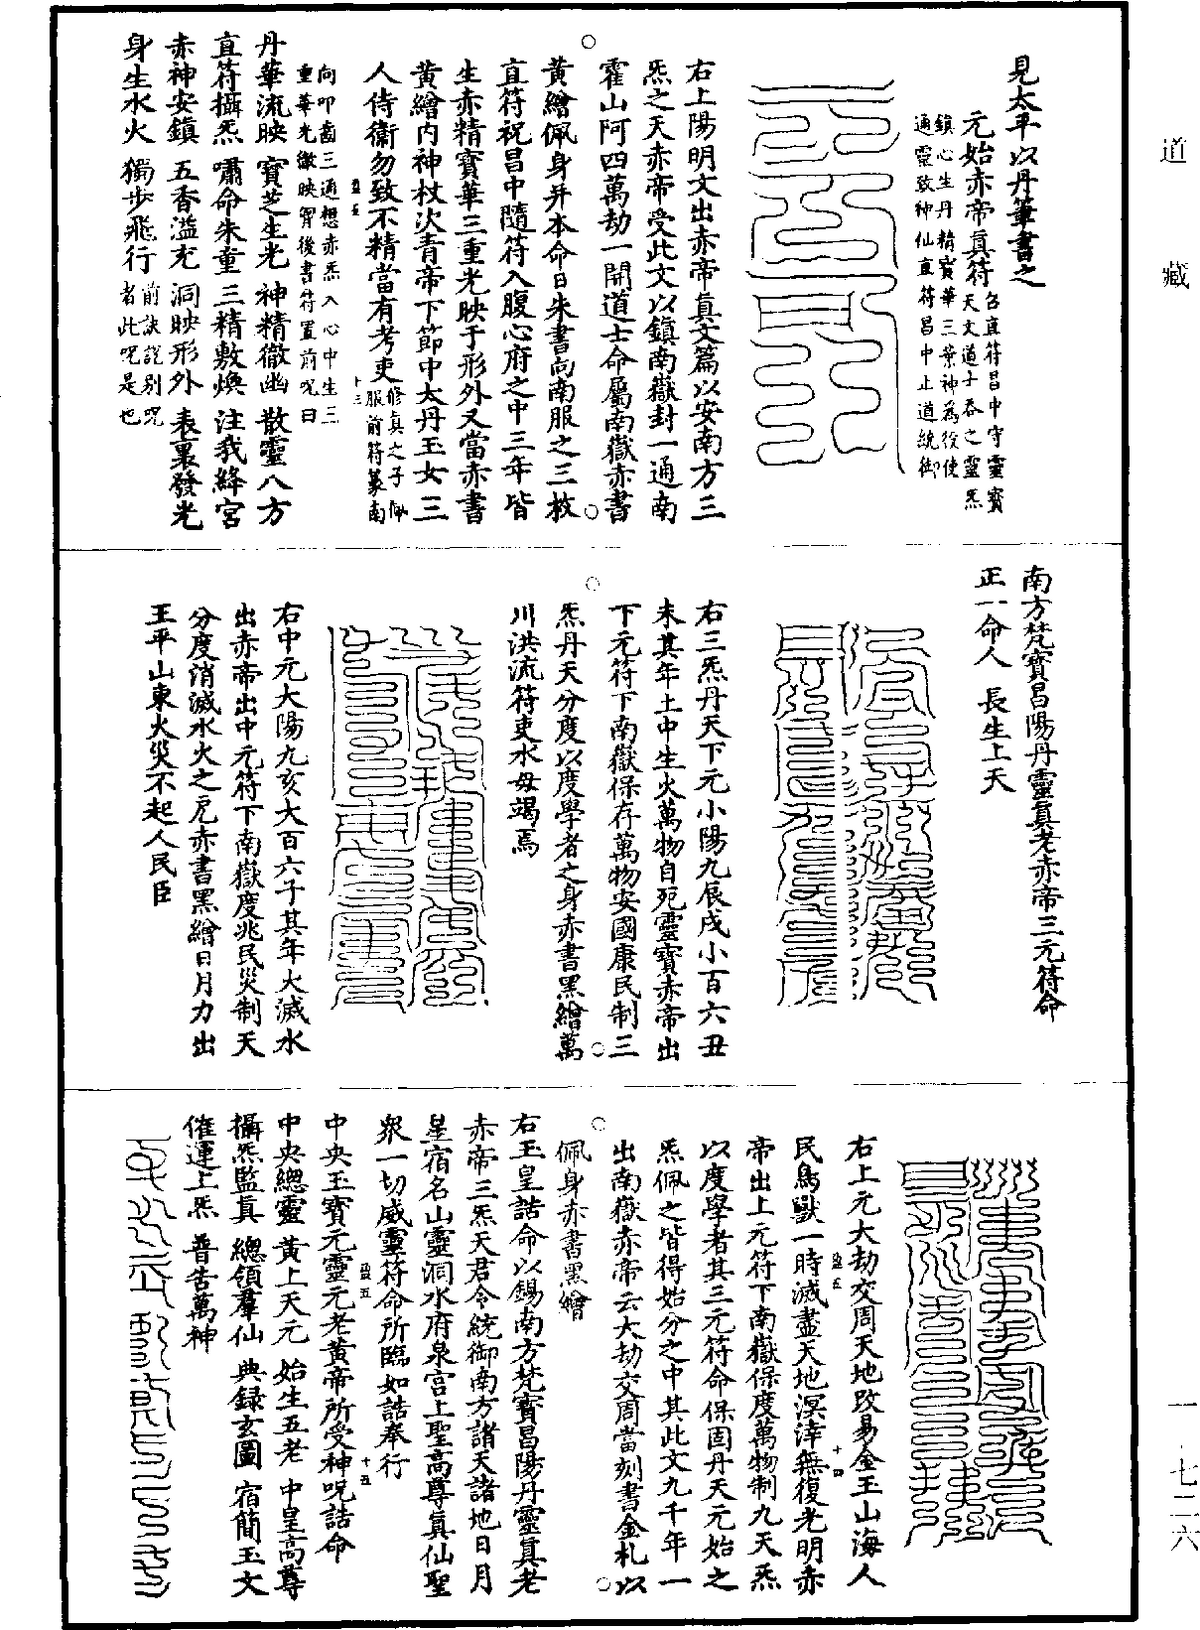 道藏
見太平以丹筆書之
元始赤帝真符
召直符昌中守靈寶天文道士吞之靈炁
鎮心生丹精寶華三葉神為役使通靈致神仙直符昌中止道統御
右上陽明文出赤帝真文篇以安南方三
炁之天赤帝受此文以鎮南嶽封一通南
霍山阿四萬劫一開道士命屬南嶽赤書
黃繒佩身并本命日朱書向南服之三枚
直符祝昌中隨符入腹心府之中三年皆
生赤精寶華三重光映于形外又當赤書
黃繒內神杖次青帝下節中太丹玉女三
人侍衛勿致不精當有考吏
修真之子佩服前符篆南
向叩齒三通想赤炁入心中生三重華光徹映胷後書符置前呪曰
丹華流映 寶芝生光 神精徹幽 散靈八方
直符攝炁 嘯命朱童 三精敷煥 注我絳宮
赤神安鎮 五香溢充 洞映形外 表裏發光
身生水火 獨步飛行
前訣說别呪者此呪是也
南方梵寶昌陽丹靈真老赤帝三元符命
正一命人 長生上天
右三炁丹天下元小陽九辰戌小百六丑
未其年土中生火萬物自死靈寶赤帝出
下元符下南嶽保存萬物安國康民制三
炁丹天分度以度學者之身赤書黑繒萬
川洪流符吏水母竭焉
右中元大陽九亥大百六子其年大滅水
出赤帝出中元符下南嶽度兆民災制天
分度消滅水火之戹赤書黑繒日月力出
王平山東火災不起人民臣
右上元大劫交周天地改易金玉山海人
民鳥獸一時滅盡天地溟涬無復光明赤
帝出上元符下南嶽保度萬物制九天炁
以度學者其三元符命保固丹天元始之
炁佩之皆得始分之中其此文九千年一
出南嶽赤帝云大劫交周當刻書金札以
佩身赤書黑繒
右玉皇誥命以錫南方梵寶昌陽丹靈真老
赤帝三炁天君令統御南方諸天諸地日月
星宿名山靈洞水府泉宮上聖高尊真仙聖
衆一切威靈符命所臨如誥奉行
中央玉寶元靈元老黃帝所受神呪誥命
中央總靈 黃上天元 始生五老 中皇高尊
攝炁監真 總領羣仙 典録玄圖 宿簡玉文
催運上炁 普告萬神
一·七二六